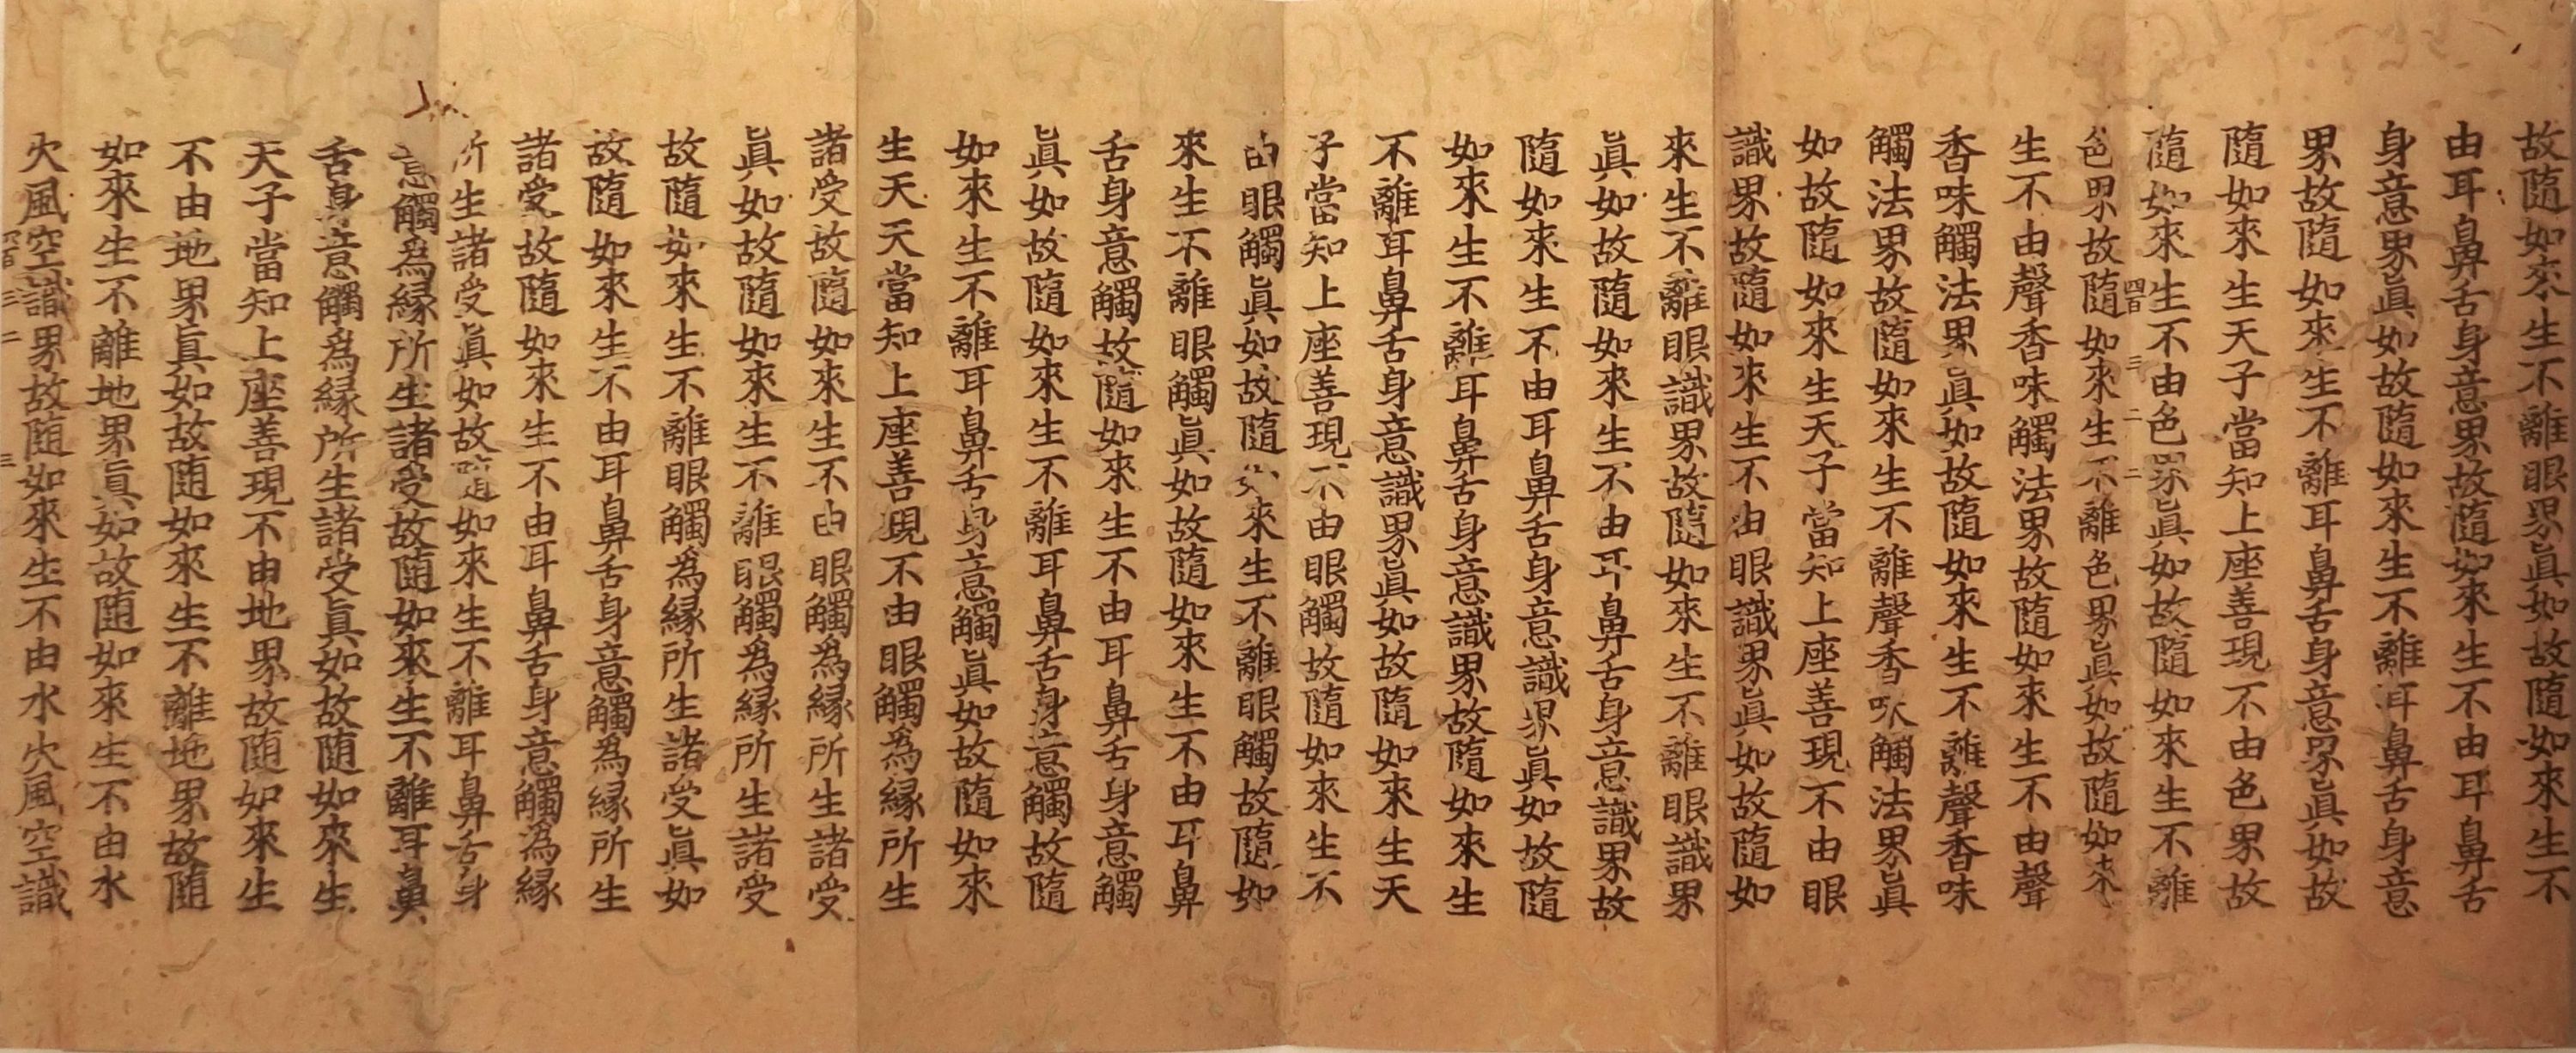 故隨如來生不離眼界眞如故隨如來生不
由耳鼻舌身意界故隨如來生不由耳鼻舌
身意界眞如故隨如來生不離耳鼻舌身意
界故隨如來生不離耳鼻舌身意界眞如故
隨如來生天子當知上座善現不由色界故
隨如來生不由色界眞如故隨如來生不離
四百 三 二 二
色界故隨如來生不離色界眞如故隨如來
生不由聲香味觸法界故隨如來生不由聲
香味觸法界眞如故隨如來生不離聲香味
觸法界故隨如來生不離聲香味觸法界眞
如故隨如來生天子當知上座善現不由眼
識界故隨如來生不由眼識界眞如故隨如
來生不離眼識界故隨如來生不離眼識界
眞如故隨如來生不由耳鼻舌身意識界故
隨如來生不由耳鼻舌身意識界眞如故隨
如來生不離耳鼻舌身意識界故隨如來生
不離耳鼻舌身意識界眞如故隨如來生天
子當知上座善現不由眼觸故隨如來生不
由眼觸眞如故隨如來生不離眼觸故隨如
來生不離眼觸眞如故隨如來生不由耳鼻
舌身意觸故隨如來生不由耳鼻舌身意觸
眞如故隨如來生不離耳鼻舌身意觸故隨
如來生不離耳鼻舌身意觸眞如故隨如來
生天天當知上座善現不由眼觸為縁所生
諸受故隨如來生不由眼觸為縁所生諸受
眞如故隨如來生不離眼觸為縁所生諸受
故隨如來生不離眼觸為縁所生諸受眞如
故隨如來生不由耳鼻舌身意觸為縁所生
諸受故隨如來生不由耳鼻舌身意觸為縁
所生諸受眞如故隨如來生不離耳鼻舌身
意觸為縁所生諸受故隨如來生不離耳鼻
舌身意觸爲縁所生諸受眞如故随如來生
天子當知上座善現不由地界故随如來生
不由地界眞如故随如來生不離地界故随
如來生不離地界眞如故随如來生不由水
火風空識界故随如來生不由水火風空識